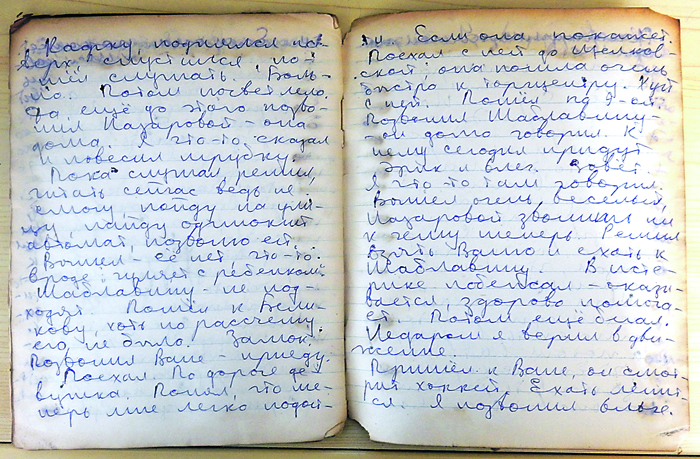 к Каджу, поднялся на-
верх спустился, по-
шёл слушать. Боль-
но. Потом посветлело.
Да, ещё до этого позво-
нил Назаровой - она
дома. Я что-то сказал
и повесил трубку.
Пока слушал, решил,
читать сейчас ведь не
смогу, пойду на ули-
цу, найду одинокий
автомат, позвоню ей.
Вышел - её нет, что-то
вроде: гуляет с ребёнком.
Шаблавину - не под-
ходят. Пошёл к Бели-
кову, хоть по рассчёту
его не было. Замок.
Позвонил Ване - приеду.
Поехал. По дороге де-
вушка. Понял, что те-
перь мне легко подой-
ти. Если она покажет
Поехал с ней до Щёлков-
ской, она пошла очень
быстро к торгцентру.
с ней. Пошёл по 9-ой.
Позвонил Шаблавину -
- он долго говорил. К
нему сегодня придут
Эрик и Олег. Зовёт.
Я что-то там говорил.
Вышел очень весёлый,
Назаровой звонить ни
к чему теперь. Решил
взять Ваню и ехать к
Шаблавину. В исте-
рике побежал - оказы-
вается, здорово помога-
ет. Потом ещё бежал.
Недаром я верил в дви-
жение.
Пришёл к Ване, он смот-
рит хоккей. Ехать ленит-
ся. Я позвонил Ольге.